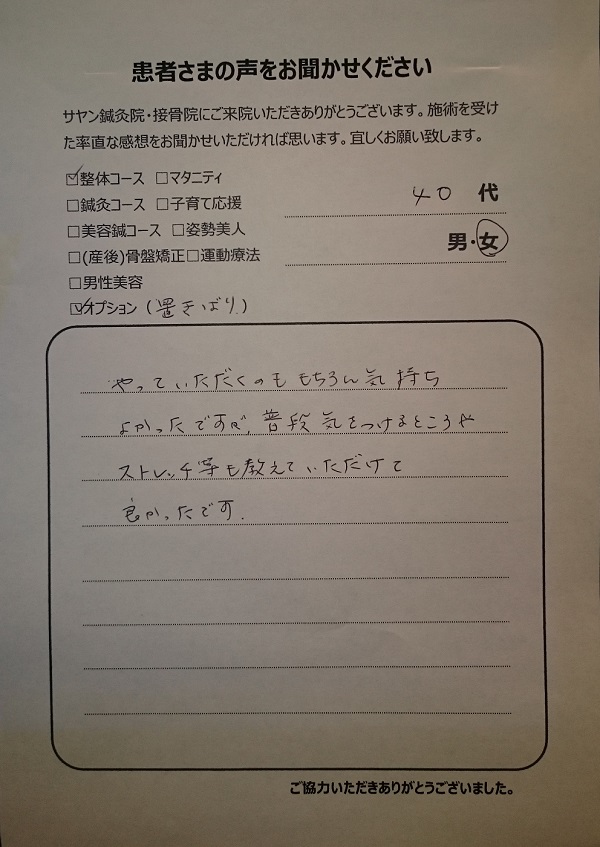 患者さまの声をお聞かせください
サヤン鍼灸院・接骨院にご来院いただきありがとうございます。施術を受け
た率直な感想をお聞かせいただければ思います。宜しくお願い致します。
☑整体コース □マタニティ
□鍼灸コース □子育て応援
□美容鍼コース □姿勢美人
□(産後)骨盤矯正□運動療法
□男性美容
☑オプション(置きばり)
40 代
男・女
やっていただくのももちろん気持ち
よかったですが、普段気をつけるところや
ストレッチ等も教えていただけて
良かったです.
ご協力いただきありがとうございました。